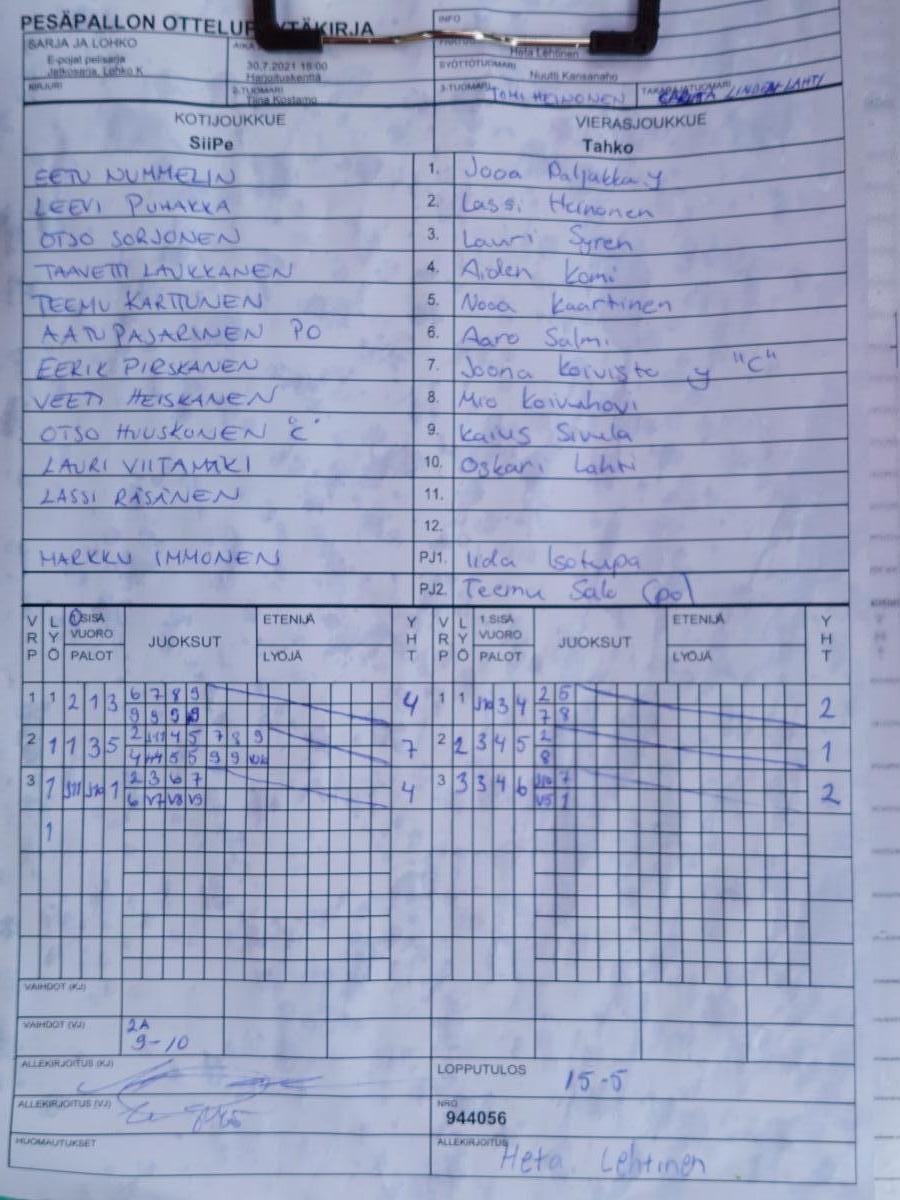 PESÄPALLON OTTELUPÖYTÄKIRJA
INFO
SARJA JA LOHKO
E-pojat pelisarja
Jatkosarja, Lohko K
30.7.2021 18:00
Harjoituskenttä
Heta Lehtinen
SYÖTTÖTUOMARI
Nuutti Kansanaho
KIRJURI
2-TUOMARI
Tiina Kostamo
3-TUOMARI
TOMI HEINONEN
TAKARAJATUOMARI
LINDÉN-LAHTI
KOTIJOUKKUE
SiiPe
VIERASJOUKKUE
Tahko
EETU NUMMELIN 1. Jooa Paljakka y
LEEVI PUHAKKA 2. Lassi Heinonen
OTSO SORJONEN 3. Lauri Syren
TAAVETTI LAUKKANEN 4. Aiden Komi
TEEMU KARTTUNEN 5. Nooa Kaartinen
AATU PAJARINEN PO 6. Aaro Salmi
EERIK PIRSKANEN 7. Joona Koivisto y "C"
VEETI HEISKANEN 8. Mio Koivuhovi
OTSO HUUSKONEN "C" 9. Kaius Sivula
LAURI VIITAMÄKI 10. Oskari Lahti
LASSI RÄSÄNEN 11.
12.
MARKKU IMMONEN PJ1. Iida Isotupa
PJ2. Teemu Salo (po)
VRP LYÖ 1.SISÄ VUORO PALOT JUOKSUT ETENIJÄ LYÖJÄ YHT VRP LYÖ 1.SISÄ VUORO PALOT JUOKSUT ETENIJÄ LYÖJÄ YHT
1 1 2 1 3 6 7 8 9 4 1 1 3 4 2 5 2
9 9 9 9 7 8
2 1 1 3 5 2 4 5 7 8 9 7 2 2 3 4 5 2 1
4 5 5 9 9 8
3 1 1 2 3 6 7 4 3 3 3 4 6 7 2
6 V7 V8 V9 V5 1
1
VAIHDOT (KJ)
VAIHDOT (VJ)
2A
9-10
ALLEKIRJOITUS (KJ)
LOPPUTULOS
15-5
ALLEKIRJOITUS (VJ)
NRO
944056
HUOMAUTUKSET
ALLEKIRJOITUS
Heta Lehtinen